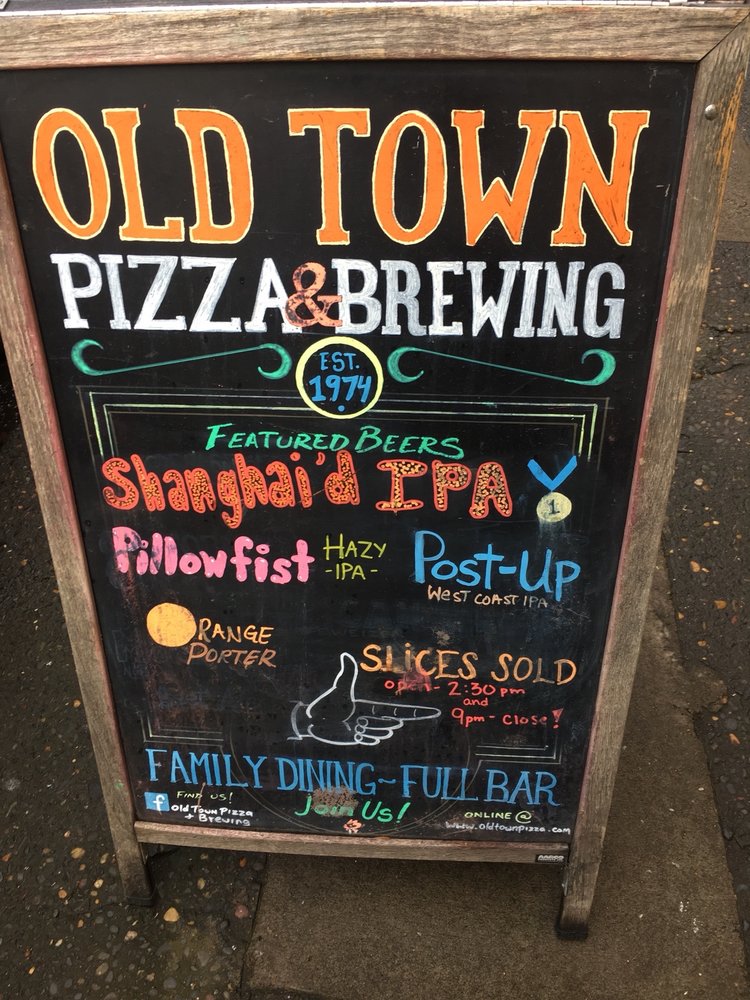 OLD TOWN
PIZZA & BREWING
EST.
1974
FEATURED BEERS
Shanghai'd IPA
1
Pillowfist HAZY
-IPA-
Post-Up
WEST COAST IPA
ORANGE
PORTER
SLiCES SOLD
open - 2:30 pm
and
9pm - close!
FAMILY DINING~FULL BAR
FIND US!
f Old Town Pizza
+ Brewing
Join Us!
ONLINE @
www.oldtownpizza.com